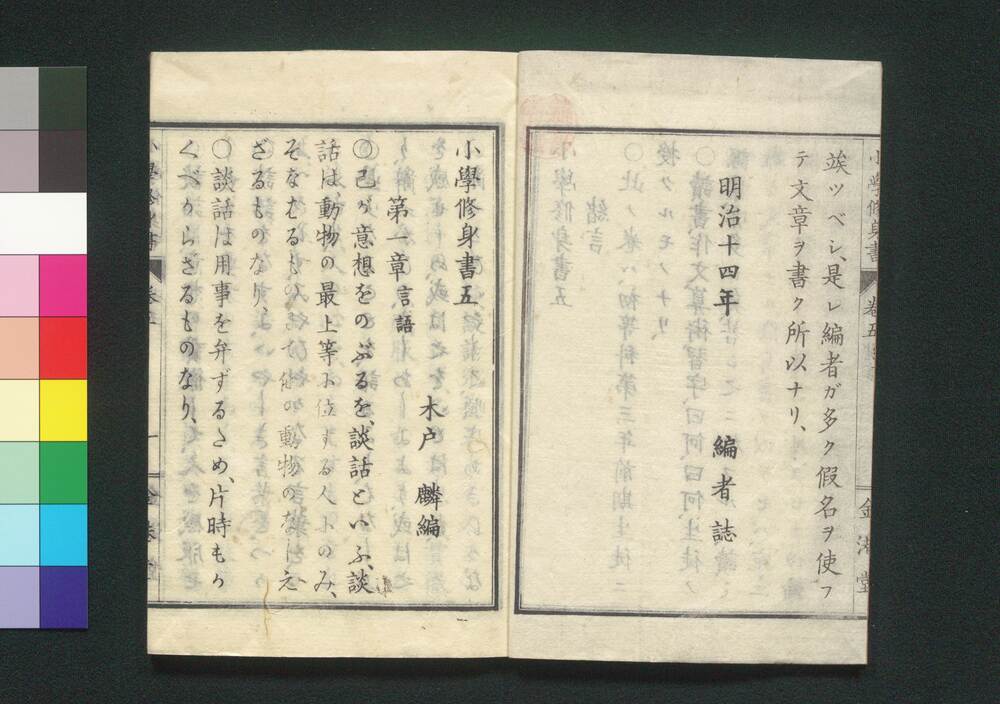 小學修身書
卷五
金港堂
竢ツベシ、是レ編者ガ多ク假名ヲ使フ
テ文章ヲ書ク所以ナリ、
明治十四年　編者誌
小學修身書五
木戸　麟編
第一章　言語
〇己が意想をのぶるを、談話といふ、談
話は、動物の最上等に位する人にのみ、
そなはるものにて、他の動物のなしえ
ざるものなり、
〇談話は用事を弁ずるため、片時もか
くべからざるものなり、